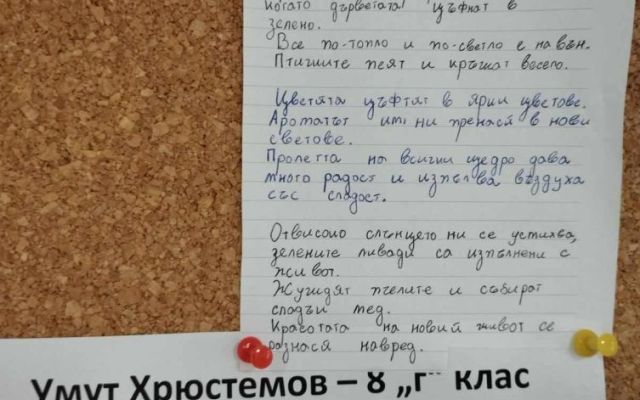 когато дърветата цъфнат в
зелено.
Все по-топло и по-светло е навън.
Птиците пеят и кръжат весело.
Цветята цъфтят в ярки цветове.
Ароматът им ни пренася в нови
светове.
Пролетта на всички щедро дава
много радост и изпълва въздуха
със сладост.
Отвисоко слънцето ни се усмихва,
зелените ливади са изпълнени с
живот.
Жужидят пчелите и събират
сладък мед.
Красотата на новий живот се
разнася навред.
Умут Хрюстемов – 8 „г“ клас